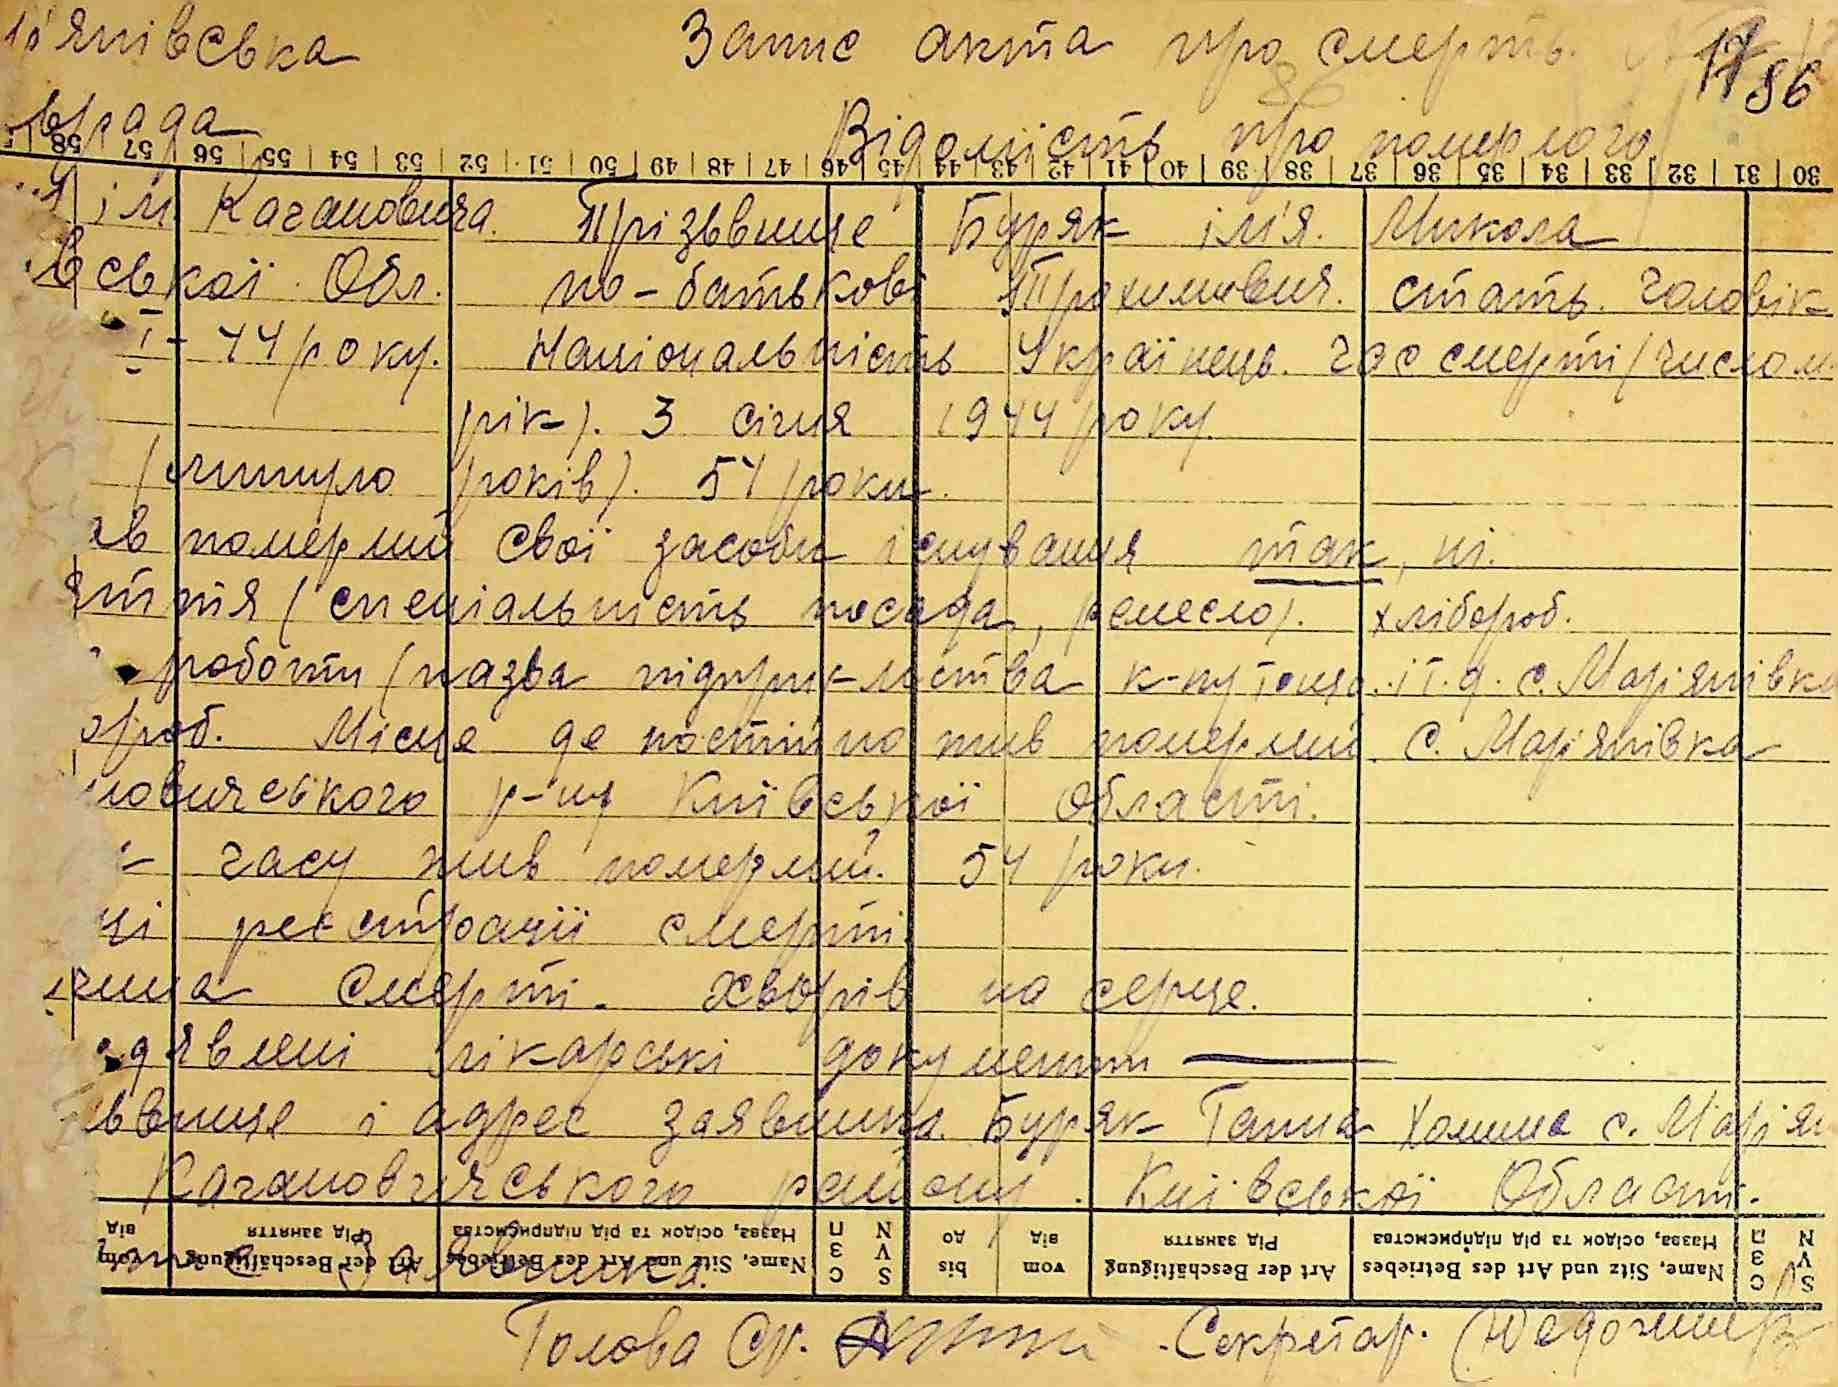 р'янівська Запис акта про смерть. 17 86
врада Відомість про померлого
58 57 56 55 54 53 52 51 50 49 48 47 46 45 44 43 42 41 40 39 38 37 36 35 34 33 32 31 30
ім Кагановича. Прізьвище Буряк ім'я. Микола
вської Обл. по-батькові Трохимович. стать. чоловік-
I-44 року. Національність Українець. час смерті (число м.
рік). 3 січня 1944 року.
(минуло років). 54 роки.
ав померлий свої засоби існування так, ні.
яття (спеціальність посада, ремесло). хлібороб.
роботи (назва підприємства к-ну і т.д. с. Мар'янівка
ороб. Місце де постійно жив померлий. с. Мар'янівка
новичського р-ну Київської Області.
часу жив померлий. 54 роки.
ці реєстрації смерті.
чина Смерті. Хворів на серце.
дявлені лікарські документи —
ьвище і адрес заявника. Буряк Ганна Хомина с. Мар'ян
Кагановичського району. Київської Області.
від Рід заняття Назва, осідок та рід підприємства П З С N V S до від Рід заняття Назва, осідок та рід підприємства П З С N V S
vom Art der Beschäftigung Name, Sitz und Art des Betriebes bis vom Art der Beschäftigung Name, Sitz und Art des Betriebes
Заявника.
Голова Ср. Секретар.